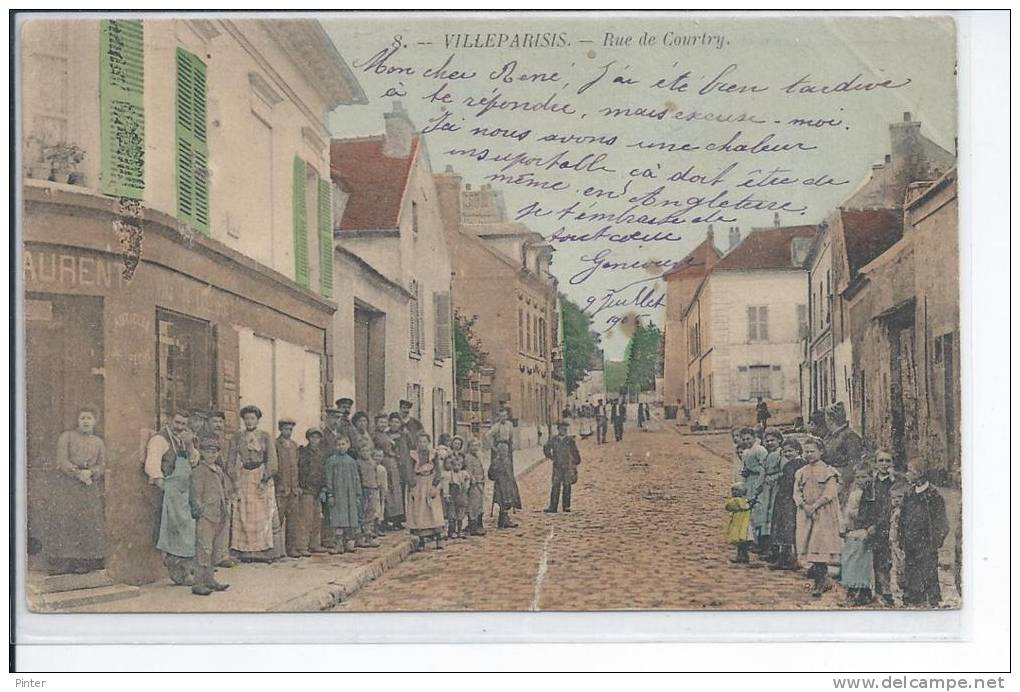 8. -- VILLEPARISIS. - Rue de Courtry.
Mon cher René, J'ai été bien tardive
à te répondre, mais excuse-moi.
J'ai nous avons une chaleur
insuportable ça doit être de
même en Angleterre.
Je t'embrasse de
tout cœur
9 Juillet
190
LAURENT
Pinter
www.delcampe.net